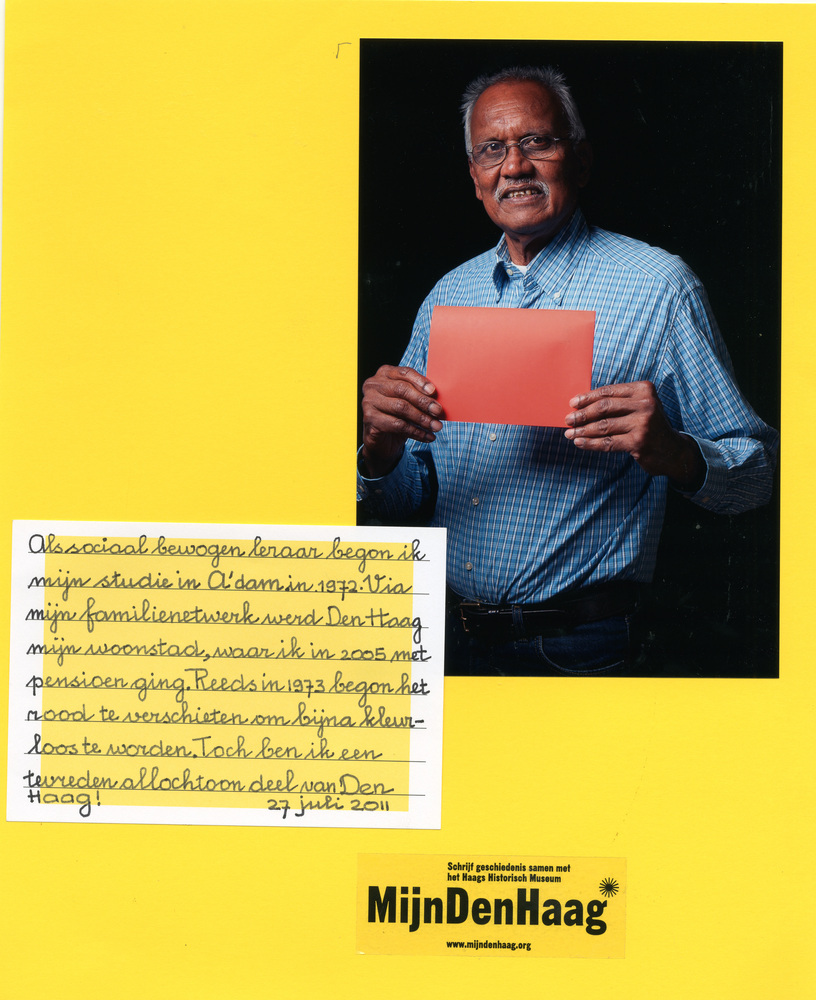 Als sociaal bewogen leraar begon ik
mijn studie in A'dam in 1972. Via
mijn familienetwerk werd Den Haag
mijn woonstad, waar ik in 2005 met
pensioen ging. Reeds in 1973 begon het
rood te verschieten om bijna kleur-
loos te worden. Toch ben ik een
tevreden allochtoon deel van Den
Haag!
27 juli 2011
Schrijf geschiedenis samen met
het Haags Historisch Museum
MijnDenHaag
www.mijndenhaag.org